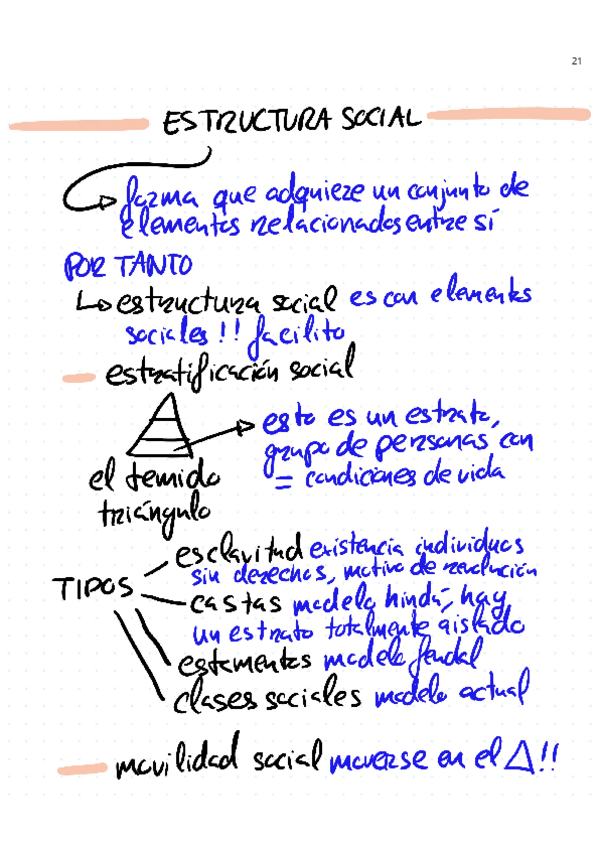 21
ESTRUCTURA SOCIAL
forma que adquiere un conjunto de
elementos relacionados entre sí
POR TANTO
estructura social es con elementos
sociales !! facilito
estratificación social
esto es un estrato,
grupo de personas con
= condiciones de vida
el temido
triángulo
TIPOS
esclavitud existencia individuos
sin derechos, motivo de revolución
castas modelo hindú, hay
un estrato totalmente aislado
estamentos modelo feudal
clases sociales modelo actual
movilidad social moverse en el △!!